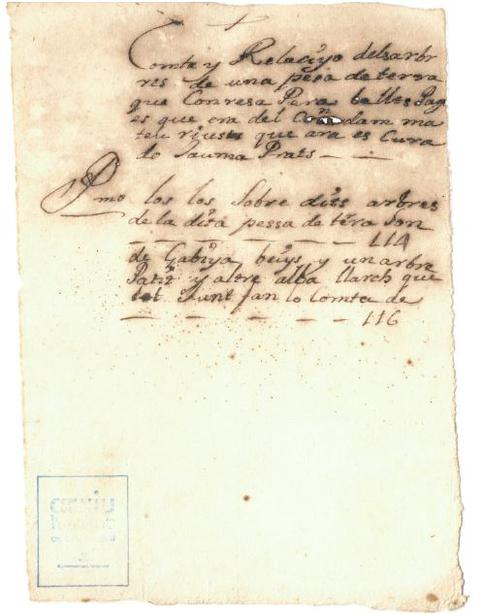 Comte y Relasiyo delsarb
rres de una pesa de terra
que Conresa Pera balles Pag
es que era del Adam ma
teu riusis que ara es Cura
do Jauma Prats
Pmo los los Sobre dits arbres
de la dita pessa de tera son
114
de Gabiya beiys y un arbre
Patit y altre alba llarch que
tot Junt fan lo Comta de
116
arxiu